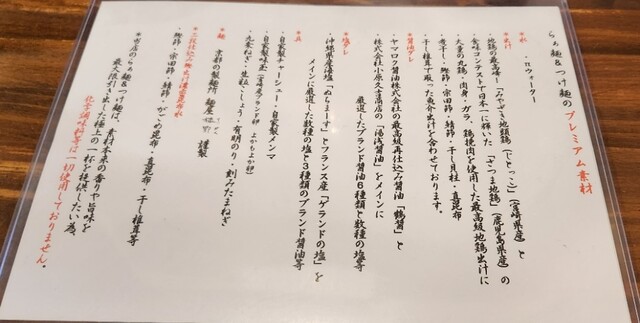 らぁ麺&つけ麺のプレミアム素材
*水
・πウォーター
*出汁
・地鶏の最高峰!「みやざき地頭鶏(じとっこ)」(宮崎県産)と
食味コンテストで日本一に輝いた「さつま地鶏」(鹿児島県産)の
大量の丸鶏・肉身・ガラ、鶏挽肉を使用した最高級地鶏出汁に
・煮干し・鰹節・宗田節・鯖節・干し貝柱・真昆布
・干し椎茸で取った魚介出汁を合わせております。
*醤油ダレ
・ヤマロク醤油株式会社の最高級再仕込み醤油「鶴醤」と
株式会社小原久吉商店の「湯浅醤油」をメインに
厳選したブランド醤油6種類と数種の塩等
*塩ダレ
・沖縄県産海塩「ぬちまーす」とフランス産「ゲランドの塩」を
メインに厳選した数種の塩と3種類のブランド醤油等
*具
・自家製チャーシュー・自家製メンマ
・自家製味玉(宮崎産ブランド卵 よかよか卵)
・九条ねぎ・生粒こしょう・有明のり・刻みたまねぎ
*麺
京都の製麺所 麺屋 謹製
*二段仕込み鰹出汁濃密昆布水
・鰹節・宗田節・鯖節・がごめ昆布・真昆布・干し椎茸等
*当店のらぁ麺&つけ麺は、素材本来の香りや旨味を
最大限引き出した極上の一杯を提供したい為、
化学調味料等は一切使用しておりません。